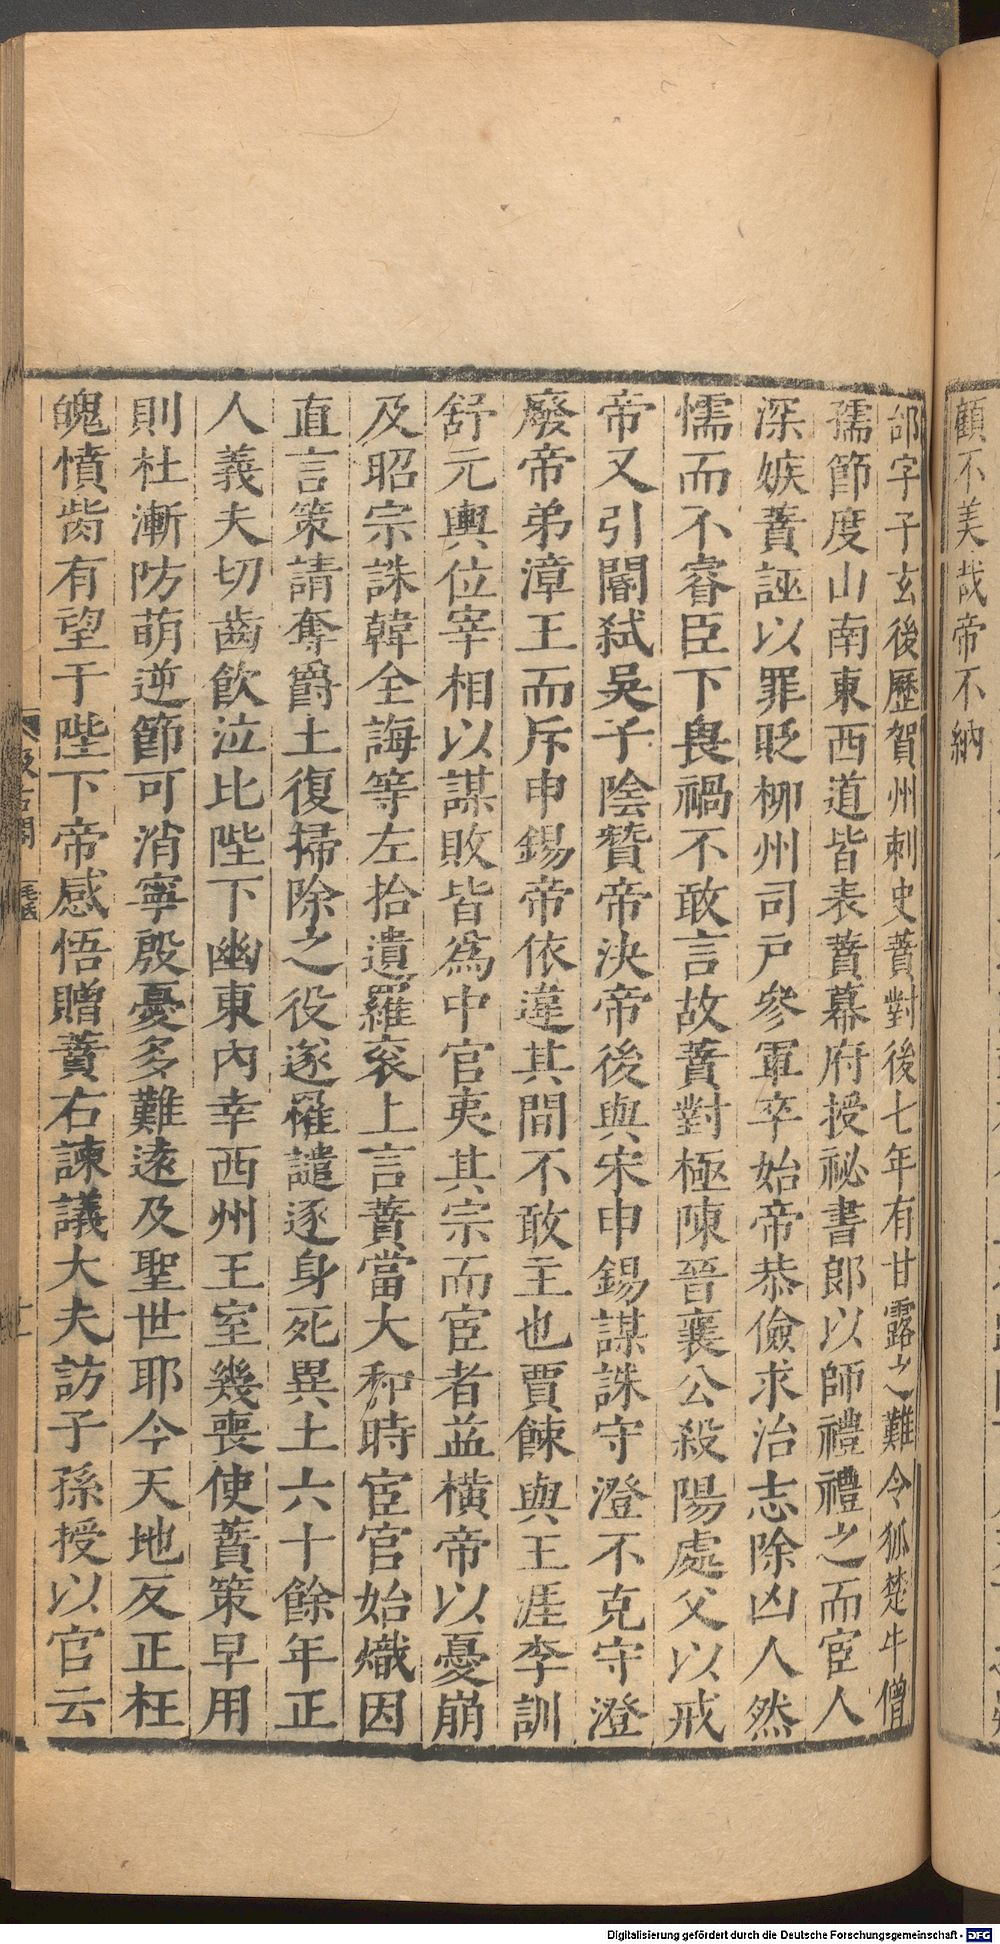 顧不美哉帝不納
郃字子玄後歷賀州刺史蕡對後七年有甘露之難令狐楚牛僧
孺節度山南東西道皆表蕡幕府授祕書郎以師禮禮之而宦人
深嫉蕡誣以罪貶柳州司戶參軍卒始帝恭儉求治志除凶人然
懦而不睿臣下畏禍不敢言故蕡對極陳晉襄公殺陽處父以戒
帝又引閽弑吳子陰贊帝決帝後與宋申錫謀誅守澄不克守澄
廢帝弟漳王而斥申錫帝依違其間不敢主也賈餗與王涯李訓
舒元輿位宰相以謀敗皆爲中官夷其宗而宦者益橫帝以憂崩
及昭宗誅韓全誨等左拾遺羅袞上言蕡當大和時宦官始熾因
直言策請奪爵土復掃除之役遂罹譴逐身死異土六十餘年正
人義夫切齒飲泣比陛下幽東內幸西州王室幾喪使蕡策早用
則杜漸防萌逆節可消寧殷憂多難遠及聖世耶今天地反正枉
魄憤胔有望于陛下帝感悟贈蕡右諫議大夫訪子孫授以官云
Digitalisierung gefördert durch die Deutsche Forschungsgemeinschaft - DFG